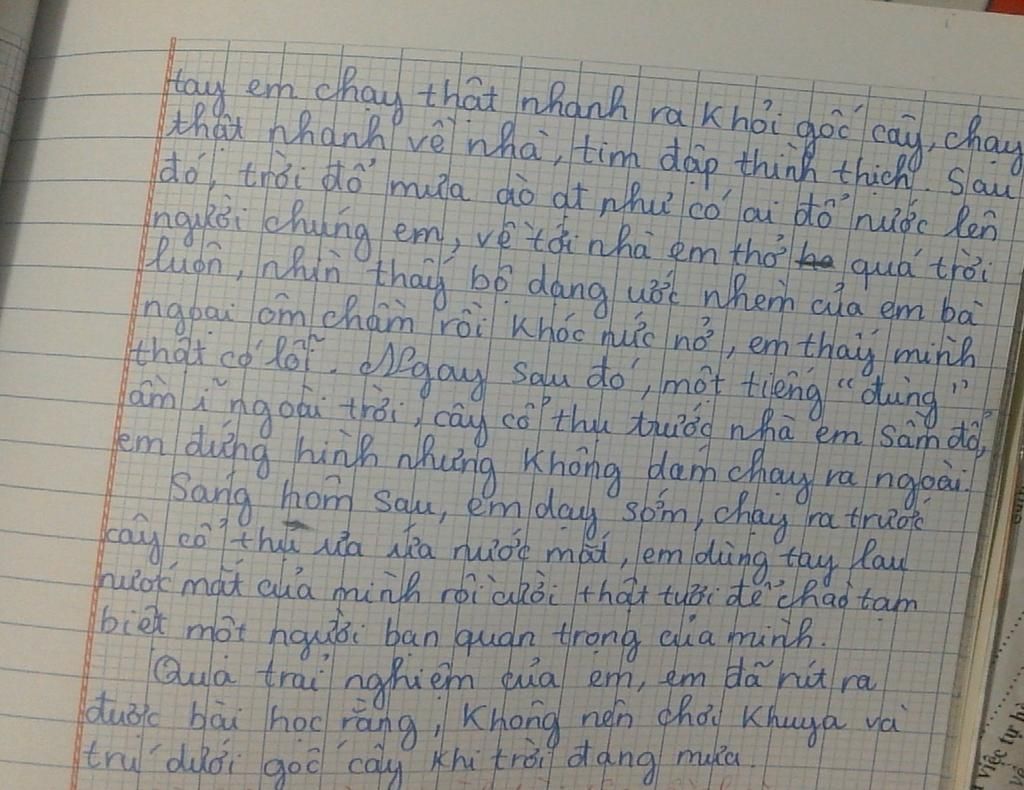 tay em chạy thật nhanh ra khỏi gốc cây, chạy
thật nhanh về nhà, tim đập thình thịch. Sau
đó, trời đổ mưa ào ạt như có ai đổ nước lên
người chúng em, về tới nhà em thở quá trời
luôn, nhìn thấy bộ dạng ướt nhẹm của em bà
ngoại ôm chầm rồi khóc nức nở, em thấy mình
thật có lỗi. Ngay sau đó, một tiếng "đùng"
ầm ĩ ngoài trời, cây cổ thụ trước nhà em sầm đổ,
em đứng hình nhưng không dám chạy ra ngoài.
Sáng hôm sau, em dạy sớm, chạy ra trước
cây cổ thụ ứa ứa nước mắt, em dùng tay lau
nước mắt của mình rồi cười thật tươi để chào tạm
biệt một người bạn quan trọng của mình.
Qua trải nghiệm của em, em đã rút ra
được bài học rằng, không nên chơi khuya và
trú dưới gốc cây khi trời đang mưa.
việc tự h